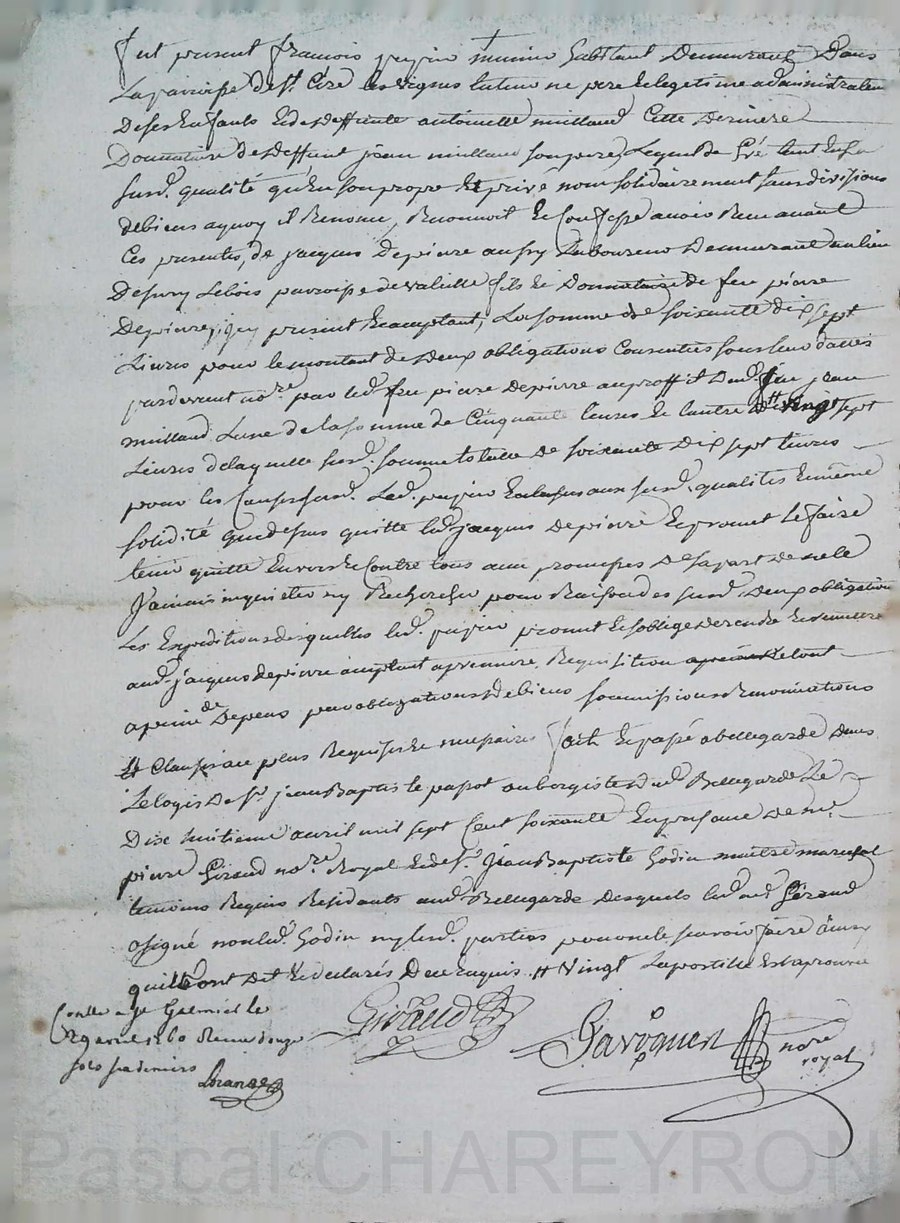 fut present francois pupier munier habittant demeurant dans
La parroisse de st. Cire les vignes tuteur ne pere et legetime administrateur
de ses Enfants et de deffunte antoinette millaud Cette derniere
Donnataire de deffunt jean millaud son pere, Lequel de Gré tant en sa
susd. qualité qu'en son propre Et privé nom solidairement sans division
de biens a quoy il Renonce, Reconnoit Et Confesse avoir Recu avant
Ces presentes, de jacques depierre aussy Laboureur Demeurant au lieu
De sury Le bois parroisse de valeille fils Et Donnataire de feu pierre
Depierre, icy present Et acceptant, La somme de soixante dix sept
Livres pour le montant de deux obligations Consenties sous leur dattes
pardevant nore. par led. feu pierre depierre au proffit dud. feu jean
millaud Lune de la somme de Cinquante livres Et lautre de # vingt sept
Livres de laquelle susd. somme totalle de soixante dix sept livres
pour les causes susd. Led. pupier Ez lesusaux susd. qualités Et meme
solidité que dessus quitte led. jacques depierre Et promet Le faire
tenir quitte Envers Et Contre tous aux promesses De sa part de ne le
Jamais inquieter ny Rechercher pour Raison des susd. deux obligations
Les Expeditions desquelles led. pupier promet Et soblige de rendre Et remettre
aud. jacques depierre acceptant a premiere Requisition
a peine de Depens par obligations de biens soumissions Renonciations
Et Clauses au plus Requises Et necessaires fait Et passé a bellegarde dans
Le logis de sr. jean Baptiste papot aubergiste dud. Bellegarde Le
Dixe huitieme avril mil sept Cent soixante En presance de me.
pierre Giraud nore. Royal Et de sr. Jean Baptiste Godin maitre marechal
temoins Requis Residants aud. Bellegarde desquels led. me. Giraud
a signé non led. Godin ny lesd. parties pour ne le scavoir faire ainsy
quils ont dit Et declarés De ce Enquis # Vingt Lapostille Est aprouvée
Conllé a st Galmier le
avril 1760 Recu douze
sols six deniers
Giraud
Garoquin nore
royal
Pascal CHAREYRON